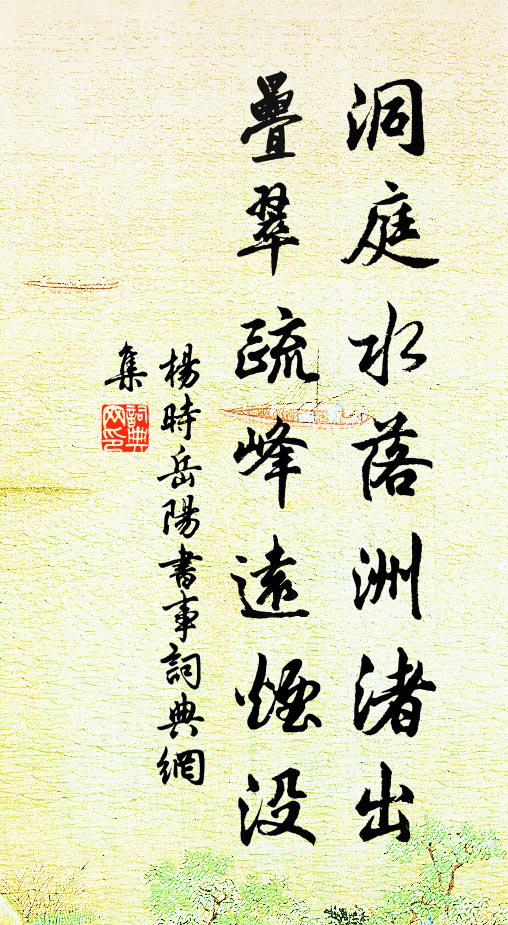 洞庭水落洲渚出
疊翠疏峰遠煙没
楊時岳陽書事詞典網
集
詞典網印